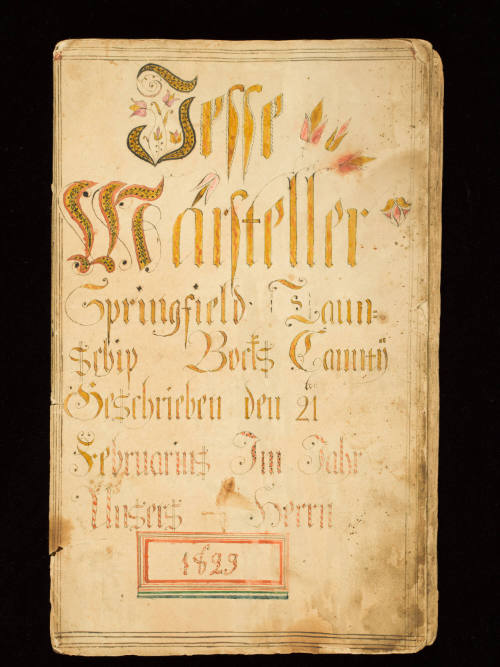 Jesse
Marsteller
Springfield Taun=
schip Bocks Caunty
Geschrieben den 21te
Februarius Im Jahr
Unsers Herrn
1823